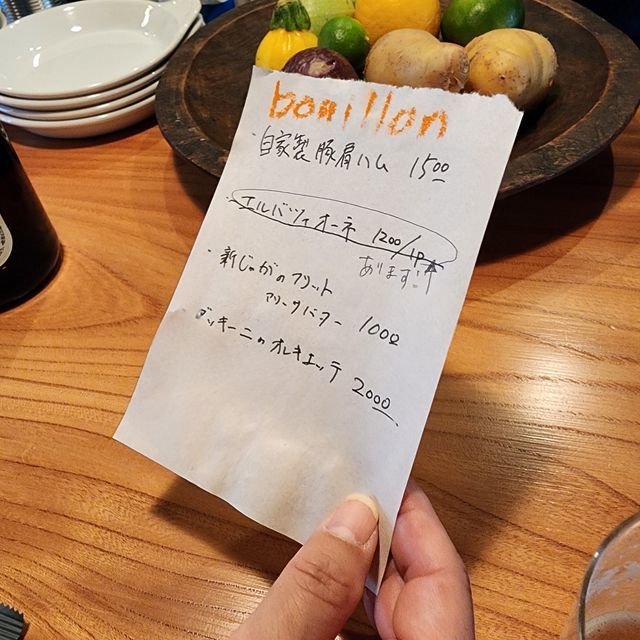 bouillon
・自家製豚肩ハム 1500
・エルバツィオーネ 1200/1P
あります!!
・新じゃがのフリット
アリーサバター 1000
・ズッキーニのオレキエッテ 2000